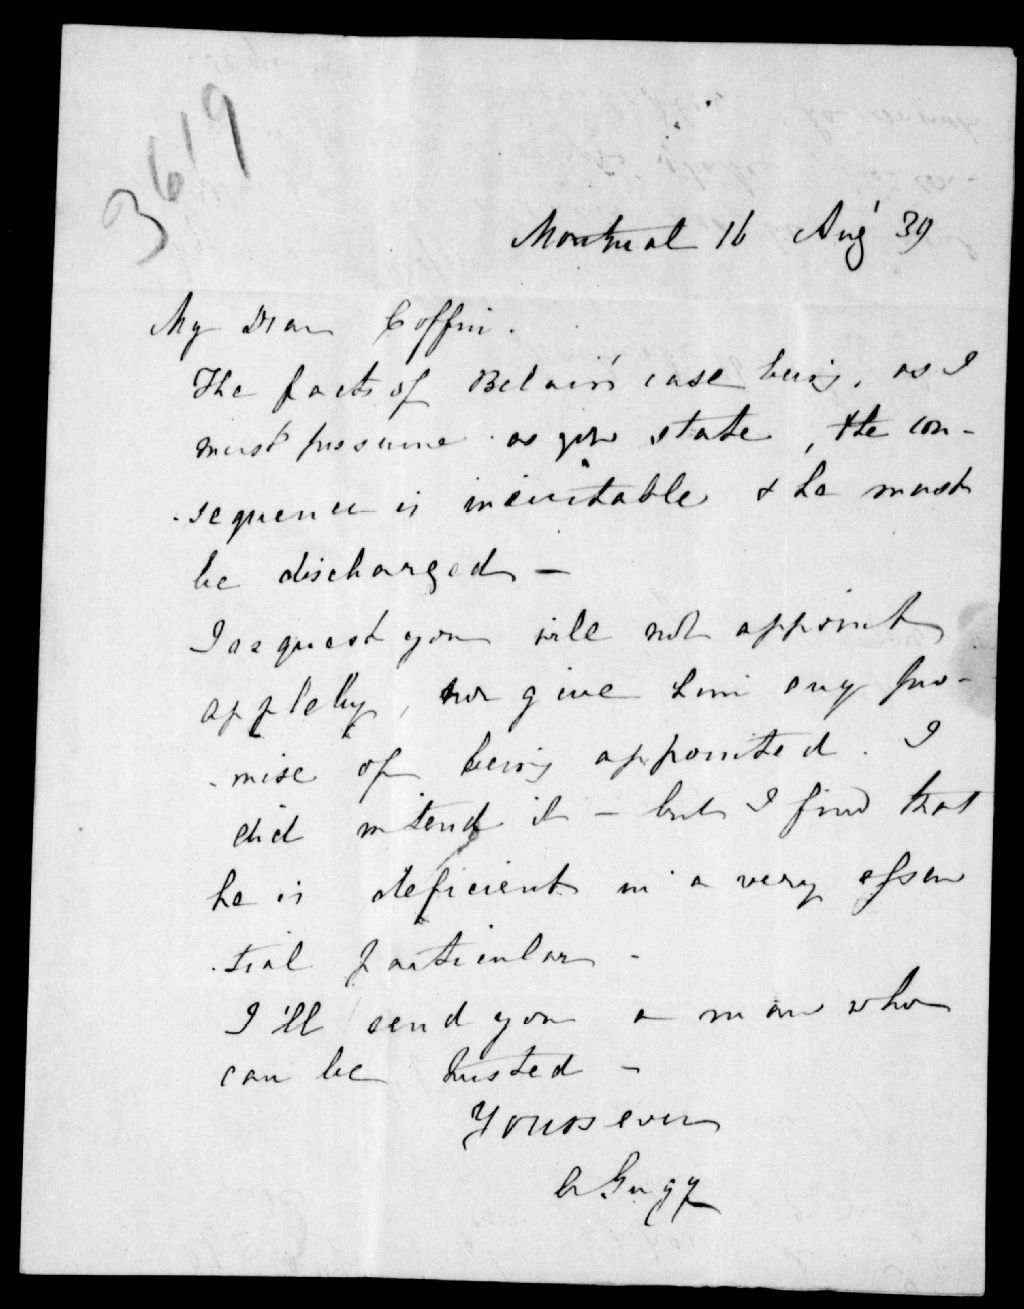 3619
Montreal 16 Aug' 39
My Dear Coffin.
The facts of Belair's case being, as I
must presume as you state, the con-
-sequence is inevitable & he must
be discharged -
I request you will not appoint
appleby, nor give him any pro-
-mise of being appointed. I
did intend it - but I find that
he is deficient in a very essen
-tial particular -
I'll send you a man who
can be trusted -
Yours ever
A Gugy